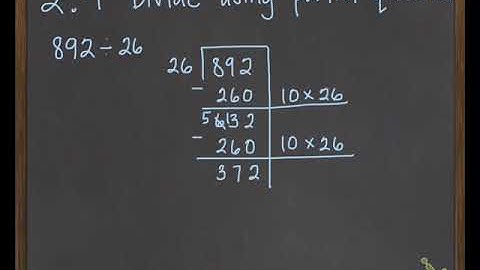 2. 4 Divide using
892 ÷ 26
26 892
- 260 10 × 26
5 6 13 2
- 260 10 × 26
372